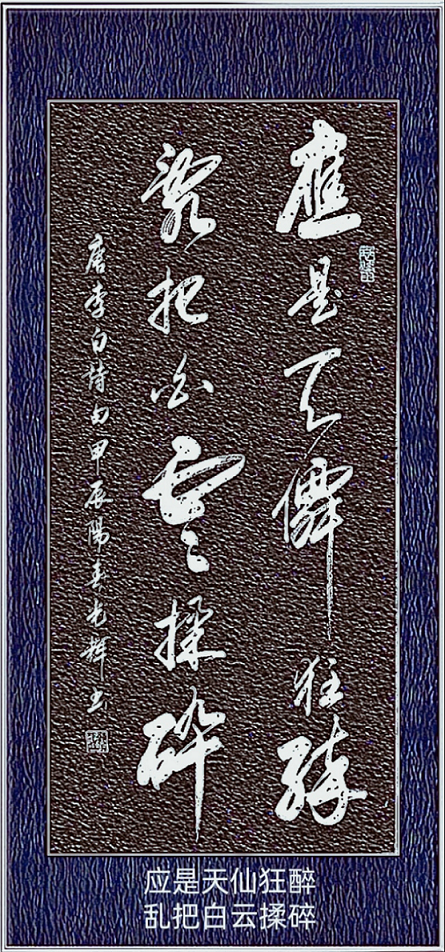 應是天僊狂醉
亂把白雲揉碎
唐李白詩句甲辰陽春光輝書
应是天仙狂醉
乱把白云揉碎